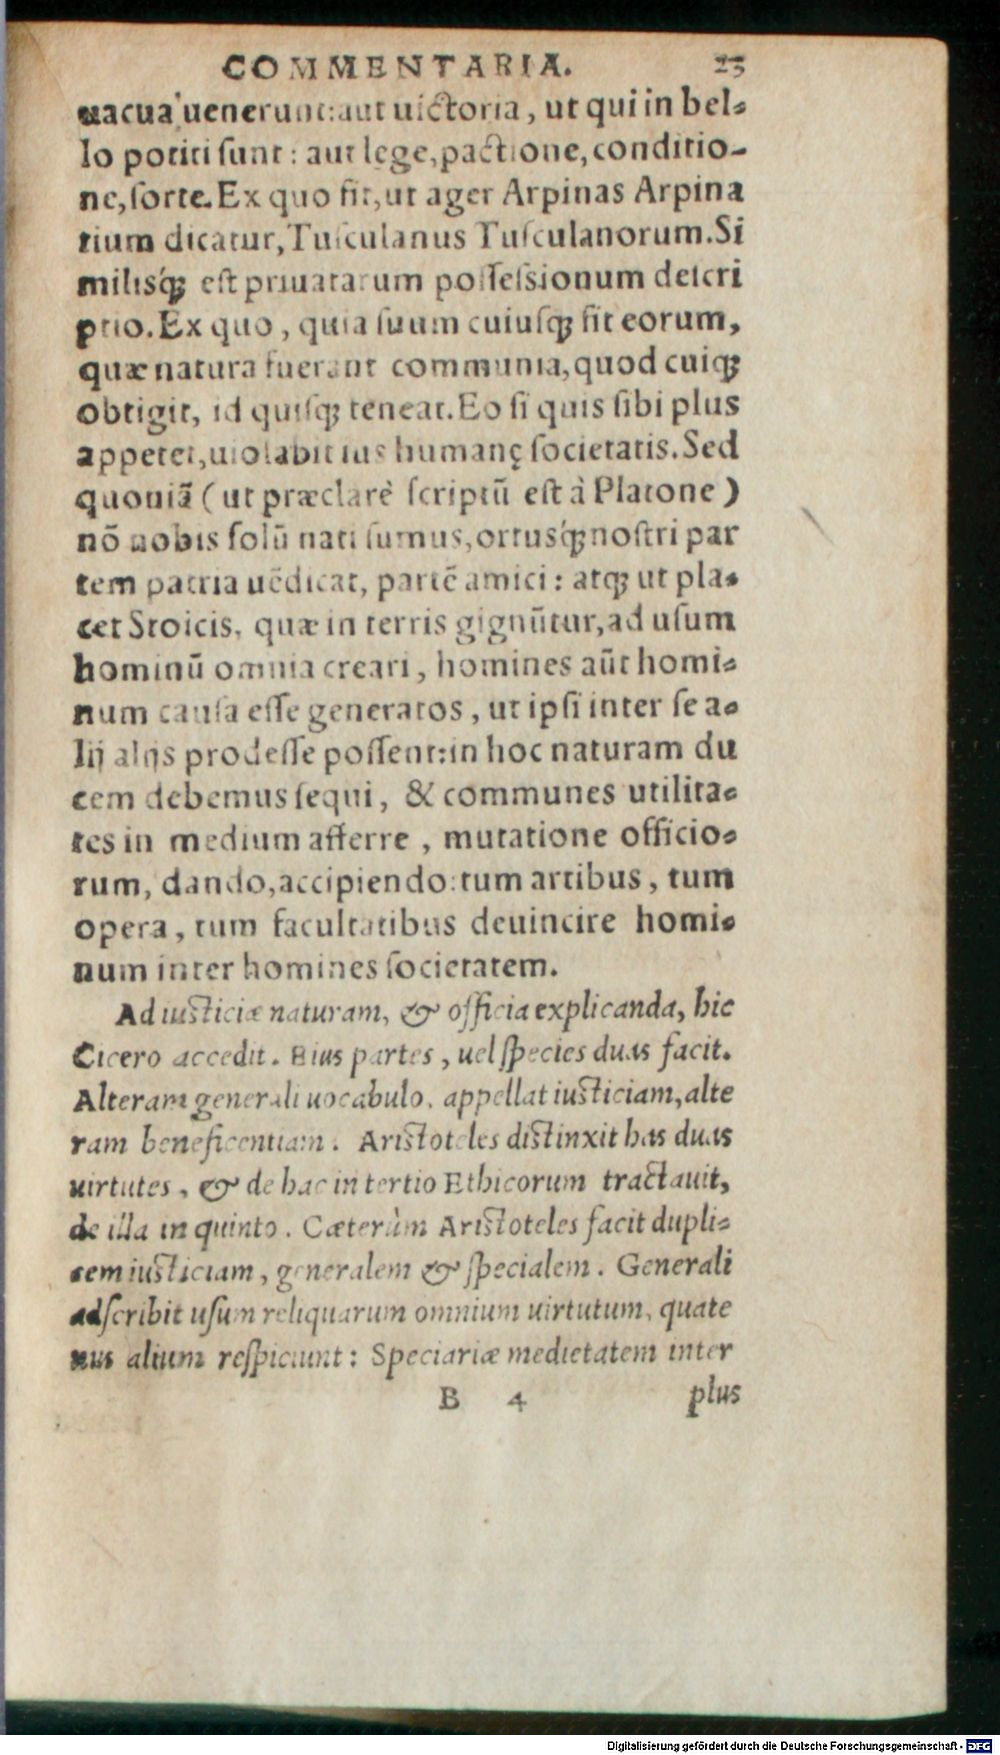 COMMENTARIA. 23
uacua uenerunt: aut uictoria, ut qui in bel-
lo potiti sunt: aut lege, pactione, conditio-
ne, sorte. Ex quo fit, ut ager Arpinas Arpina
tium dicatur, Tusculanus Tusculanorum. Si
milisq́ꝫ est priuatarum possessionum descri
ptio. Ex quo, quia suum cuiusqꝫ fit eorum,
quæ natura fuerant communia, quod cuiqꝫ
obtigit, id quisqꝫ teneat. Eo si quis sibi plus
appetet, uiolabit ius humanę societatis. Sed
quoniã (ut præclarè scriptũ est à Platone)
nõ nobis solũ nati sumus, ortusq́ꝫ nostri par
tem patria uẽdicat, partẽ amici: atqꝫ ut pla-
cet Stoicis, quæ in terris gignũtur, ad usum
hominũ omnia creari, homines aũt homi-
num causa esse generatos, ut ipsi inter se a-
lij alijs prodesse possent: in hoc naturam du
cem debemus sequi, & communes utilita-
tes in medium afferre, mutatione officio-
rum, dando, accipiendo: tum artibus, tum
opera, tum facultatibus deuincire homi-
num inter homines societatem.
Ad iusticiæ naturam, & officia explicanda, hic
Cicero accedit. Eius partes, uel species duas facit.
Alteram generali uocabulo, appellat iusticiam, alte
ram beneficentiam. Aristoteles distinxit has duas
uirtutes, & de hac in tertio Ethicorum tractauit,
de illa in quinto. Cæterùm Aristoteles facit dupli-
cem iusticiam, generalem & specialem. Generali
adscribit usum reliquarum omnium uirtutum, quate
nus alium respiciunt: Speciariæ medietatem inter
B 4 plus
Digitalisierung gefördert durch die Deutsche Forschungsgemeinschaft - DFG